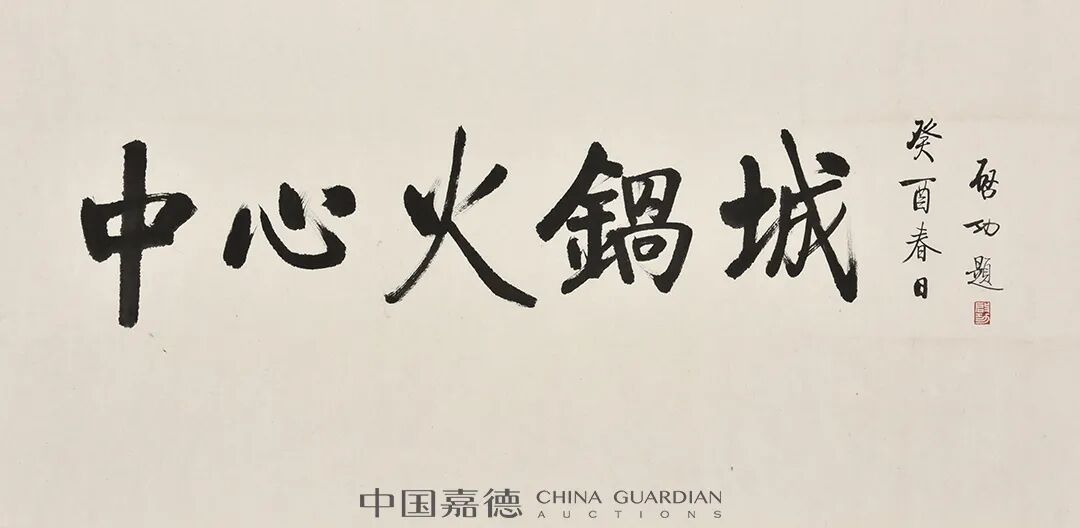 中心火鍋城
癸酉春日
啓功題
中国嘉德 CHINA GUARDIAN
AUCTIONS